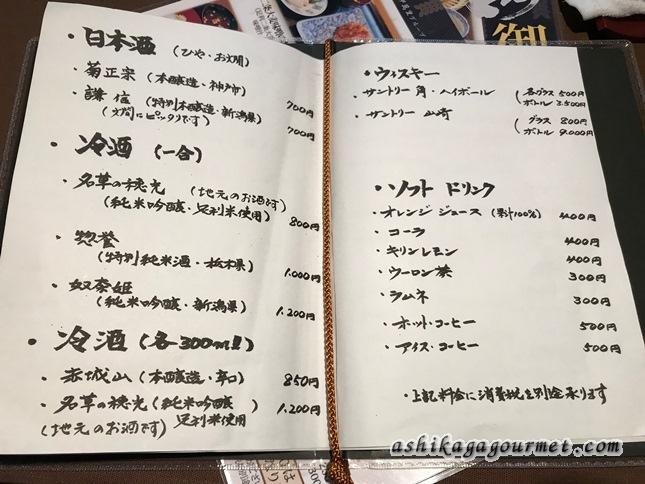 ・日本酒 (ひや・お燗)
・菊正宗 (本醸造・神戸市)
700円
・謙信 (特別本醸造・新潟県)
(お燗にピッタリです)
700円
・冷酒 (一合)
・名草の穂光 (地元のお酒です)
(純米吟醸・足利米使用)
800円
・惣誉
(特別純米酒・栃木県)
1.000円
・奴奈姫
(純米吟醸・新潟県)
1.200円
・冷酒 (各300ml)
・赤城山 (本醸造・辛口) 850円
・名草の穂光 (純米吟醸
足利米使用) 1.200円
(地元のお酒です)
・ウィスキー
・サントリー 角・ハイボール (各グラス 500円
ボトル 3.500円
・サントリー 山崎 (グラス 800円
ボトル 9.000円
・ソフト ドリンク
・オレンジ ジュース (果汁100%) 400円
・コーラ 400円
・キリンレモン 400円
・ウーロン茶 300円
・ラムネ 300円
・ホット・コーヒー 500円
・アイス・コーヒー 500円
・上記料金に消費税を別途承ります
ashikagagourmet.com